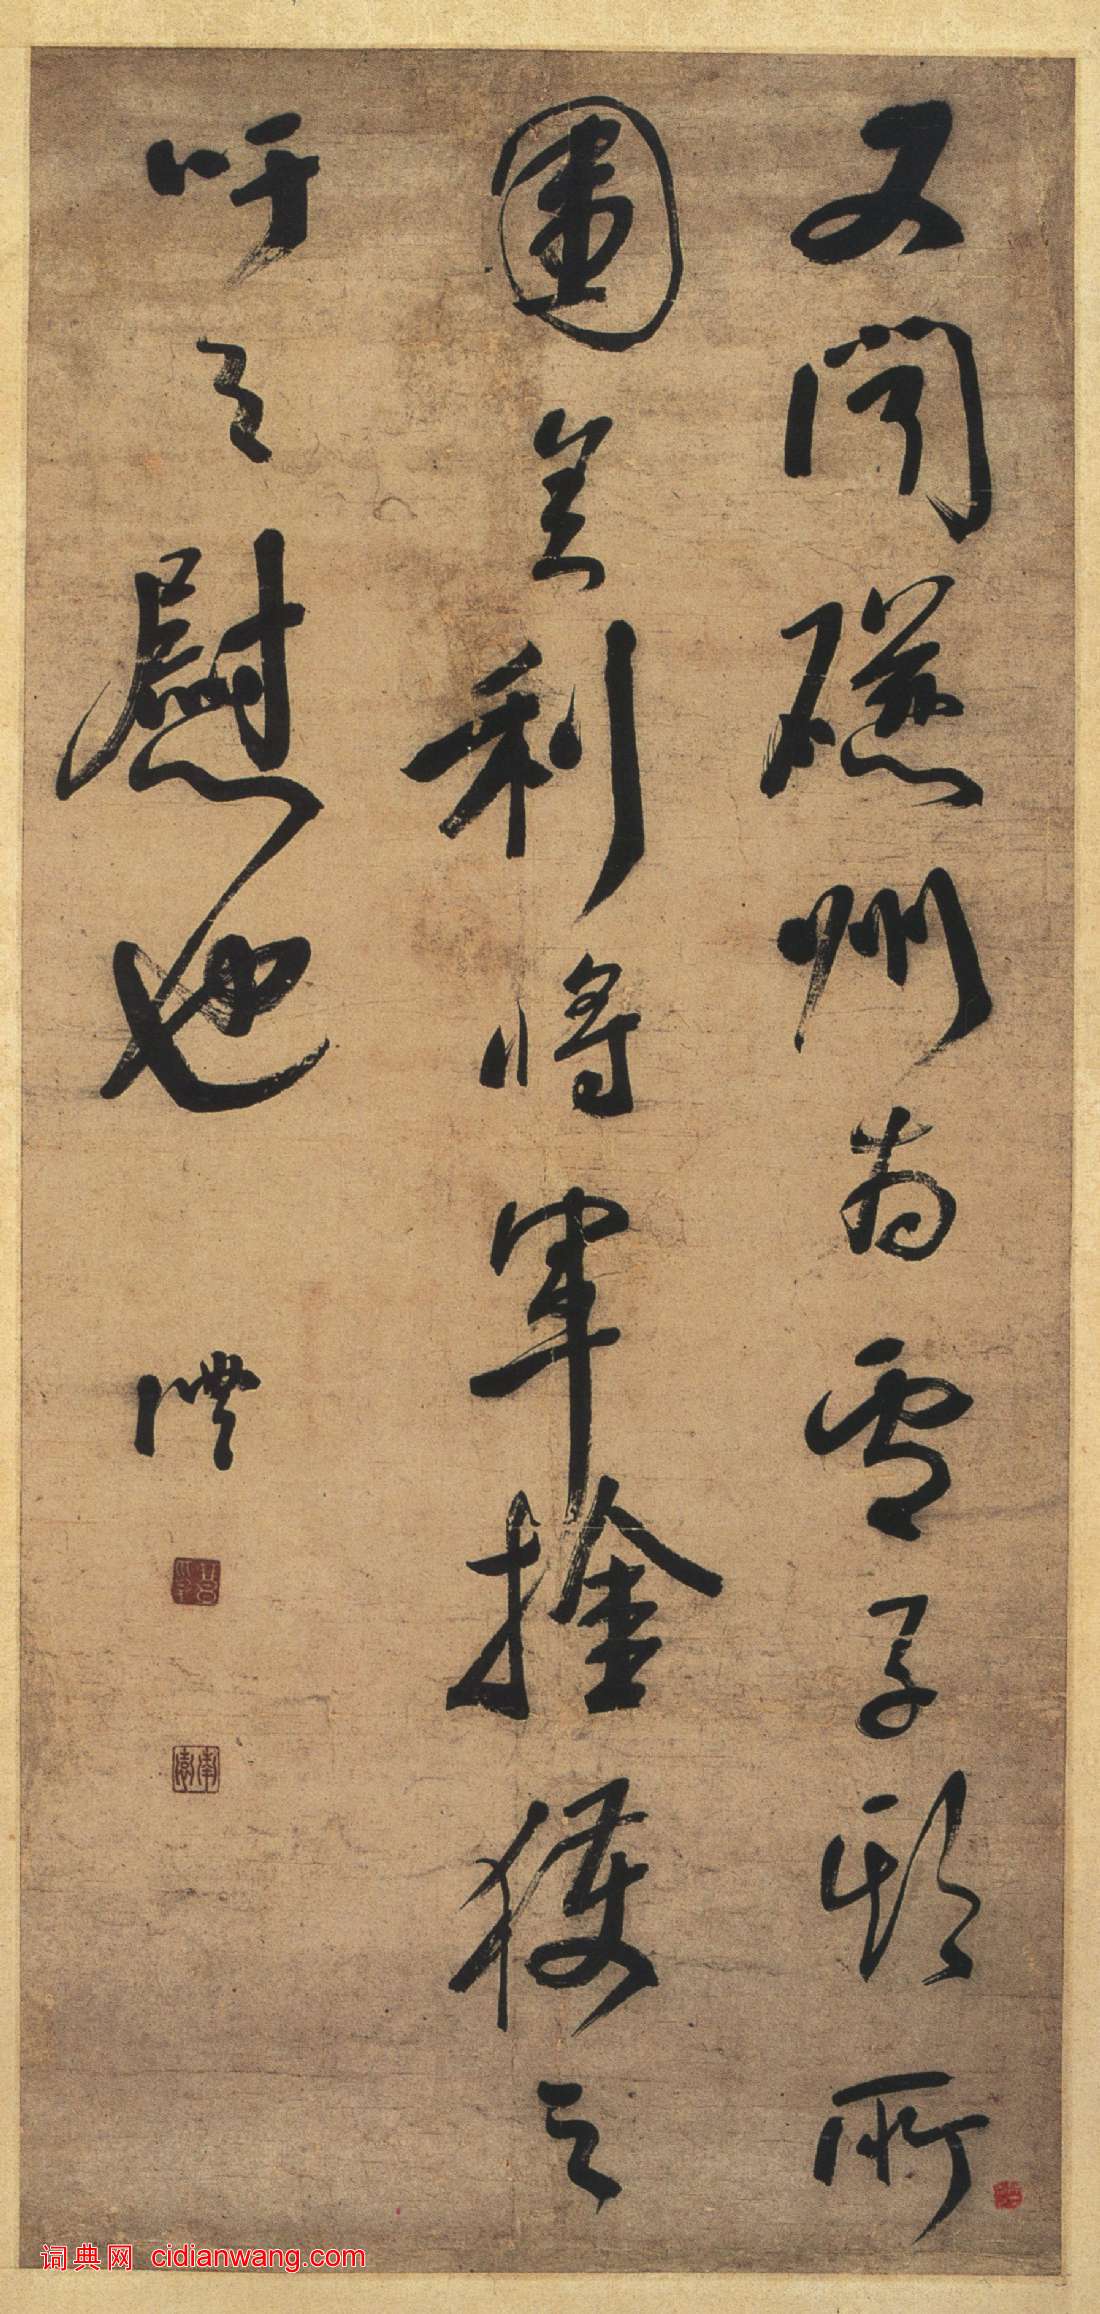 又聞磁州為盧子期所
圍舍利將軍擒獲之
吁足慰也
澧
词典网 cidianwang.com